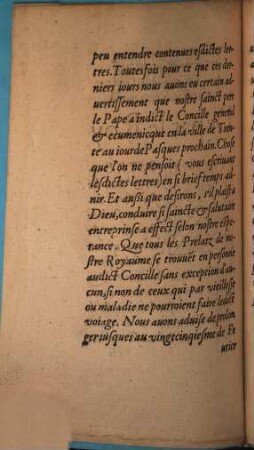 peu entendre contenues esdictes let-
tres. Toutesfois pour ce que ces der-
niers iours nous auons eu certain ad-
uertissement que nostre sainct pere
le Pape a indict le Concille general
& ecumenicque en la ville de Tren-
te au iour de Pasques prochain. Chose
que l'on ne pensoit (vous escriuant
lesdictes lettres) en si brief temps ad-
nir. Et aussi que desirons, s'il plaist a
Dieu, conduire si saincte & salutaire
entreprinse a effect selon nostre espe-
rance. Que tous les Prelatz de no-
stre Royaume se trouuēt en personne
audict Concille sans exception d'au-
cun, si non de ceux qui par vieillesse
ou maladie ne pourroient faire ledict
voiage. Nous auons aduise de prolon
ger iusques au vingtcinqiesme de Fe
urier